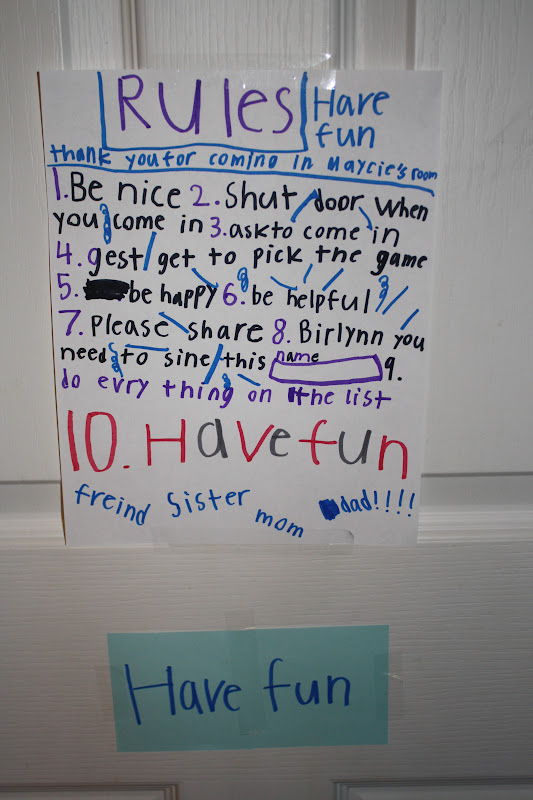 Rules Have
fun
thank you for coming in Maycie's room
1. Be nice 2. Shut door when
you come in 3. ask to come in
4. gest get to pick the game
5. be happy 6. be helpful
7. Please share 8. Birlynn you
need to sine this name 9.
do evry thing on the list
10. Have fun
freind sister mom dad!!!!
Have fun